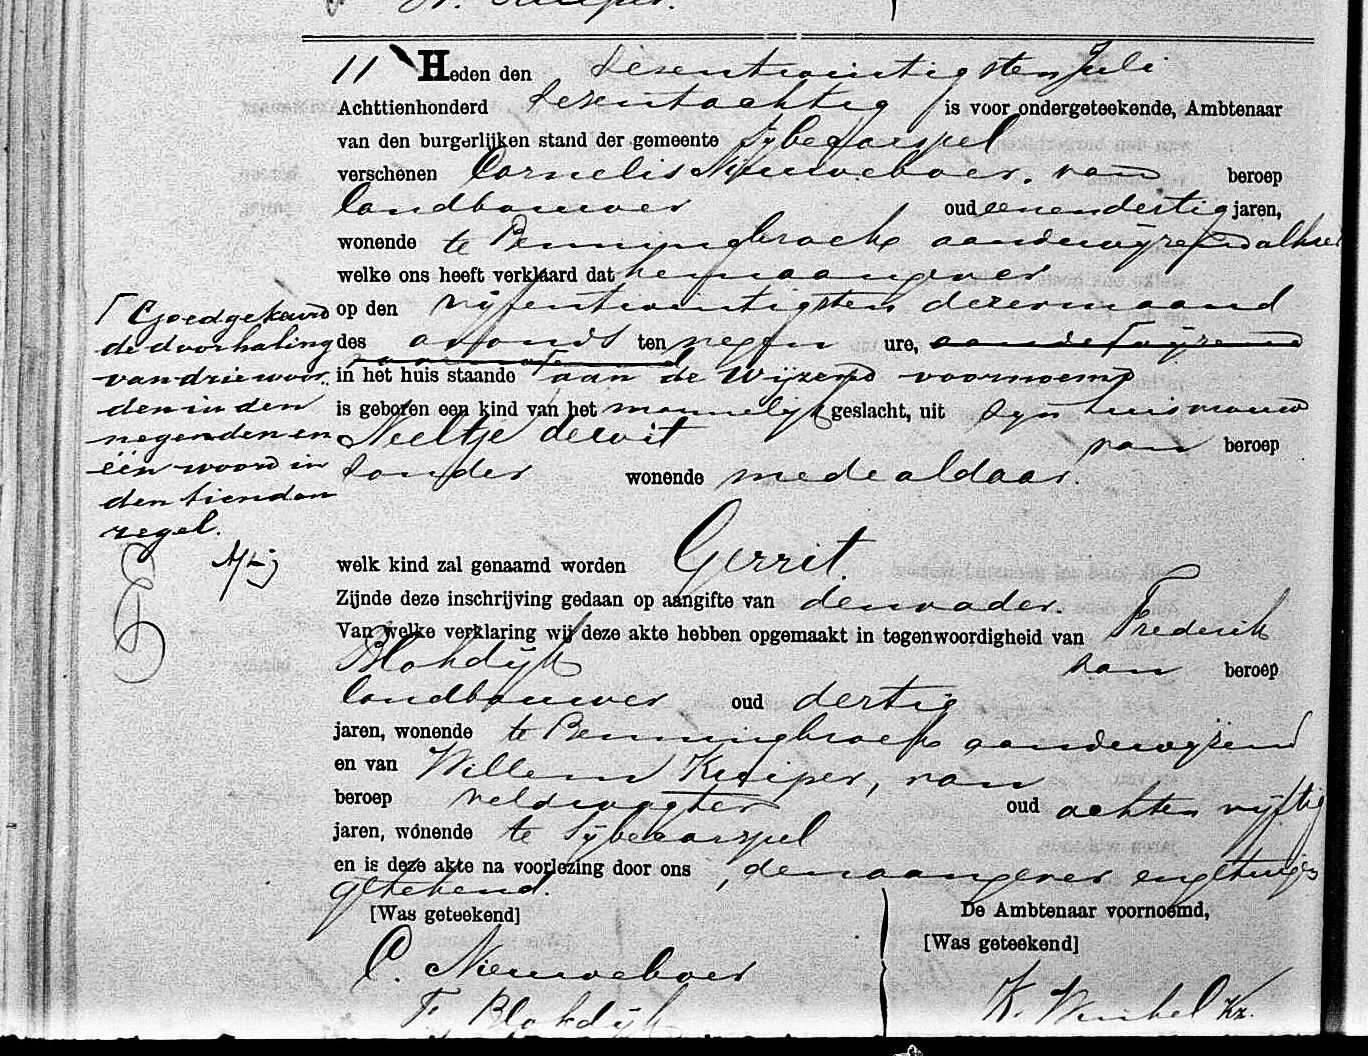 N. Kuiper.
11 Heden den sesentwintigsten Juli
Achttienhonderd sesentachtig is voor ondergeteekende, Ambtenaar
van den burgerlijken stand der gemeente Sybecarspel
verschenen Cornelis Nieuweboer, van beroep
landbouwer oud eenendertig jaren,
wonende te Benningbroek aandewijzend alhier
welke ons heeft verklaard dat
op den vijfentwintigsten dezermaand
des avonds ten negen ure, aandewijzend
in het huis staande aan de Wijzend voornoemd
is geboren een kind van het mannelijk geslacht, uit syn huisvrouw
Neeltje dewit van beroep
sonder wonende mede aldaar.
welk kind zal genaamd worden Gerrit.
Zijnde deze inschrijving gedaan op aangifte van denvader.
Van welke verklaring wij deze akte hebben opgemaakt in tegenwoordigheid van Frederik
Blokdijk van beroep
landbouwer oud dertig
jaren, wonende te Benningbroek aandewijzend
en van Willem Kuiper, van
beroep veldwagter oud achten vijftig
jaren, wonende te Sybecarspel
en is deze akte na voorlezing door ons, denaangever engetuigen
getekend.
[Was geteekend]
C. Nieuweboer
F. Blokdijk
De Ambtenaar voornoemd,
[Was geteekend]
K. Winkel Kz.
Goedgekeurd
de doorhaling
van drie woor
den in den
negenden en
één woord in
den tienden
regel.